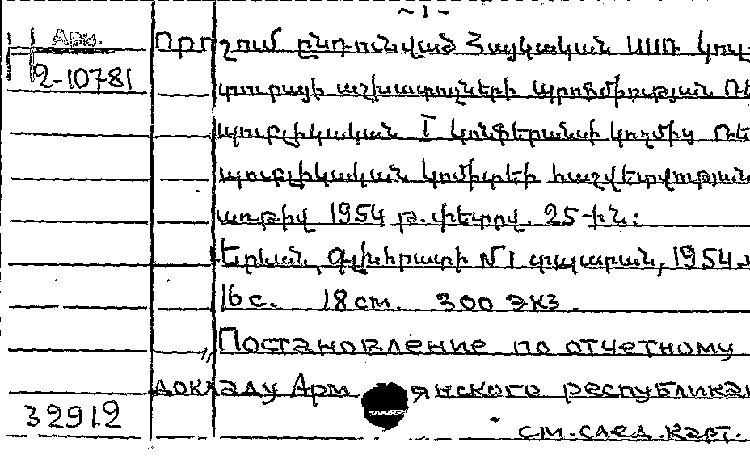 - 1 -
Арм.
2-10781
Որոշում ընդունված Հայկական ՍՍՌ կուլ-
տուրայի աշխատողների պրոֆմիության Ռե
պուբլիկական I կոնֆերանսի կողմից Ռե
պուբլիկական կոմիտեի հաշվետվության
առթիվ 1954 թ. փետրվ. 25-ին:
Երևան, Գլխհրատի №1 տպարան, 1954
16 с. 18 см. 300 экз.
„Постановление по отчетному
докладу Армянского республикан
32912
см. след. карт.